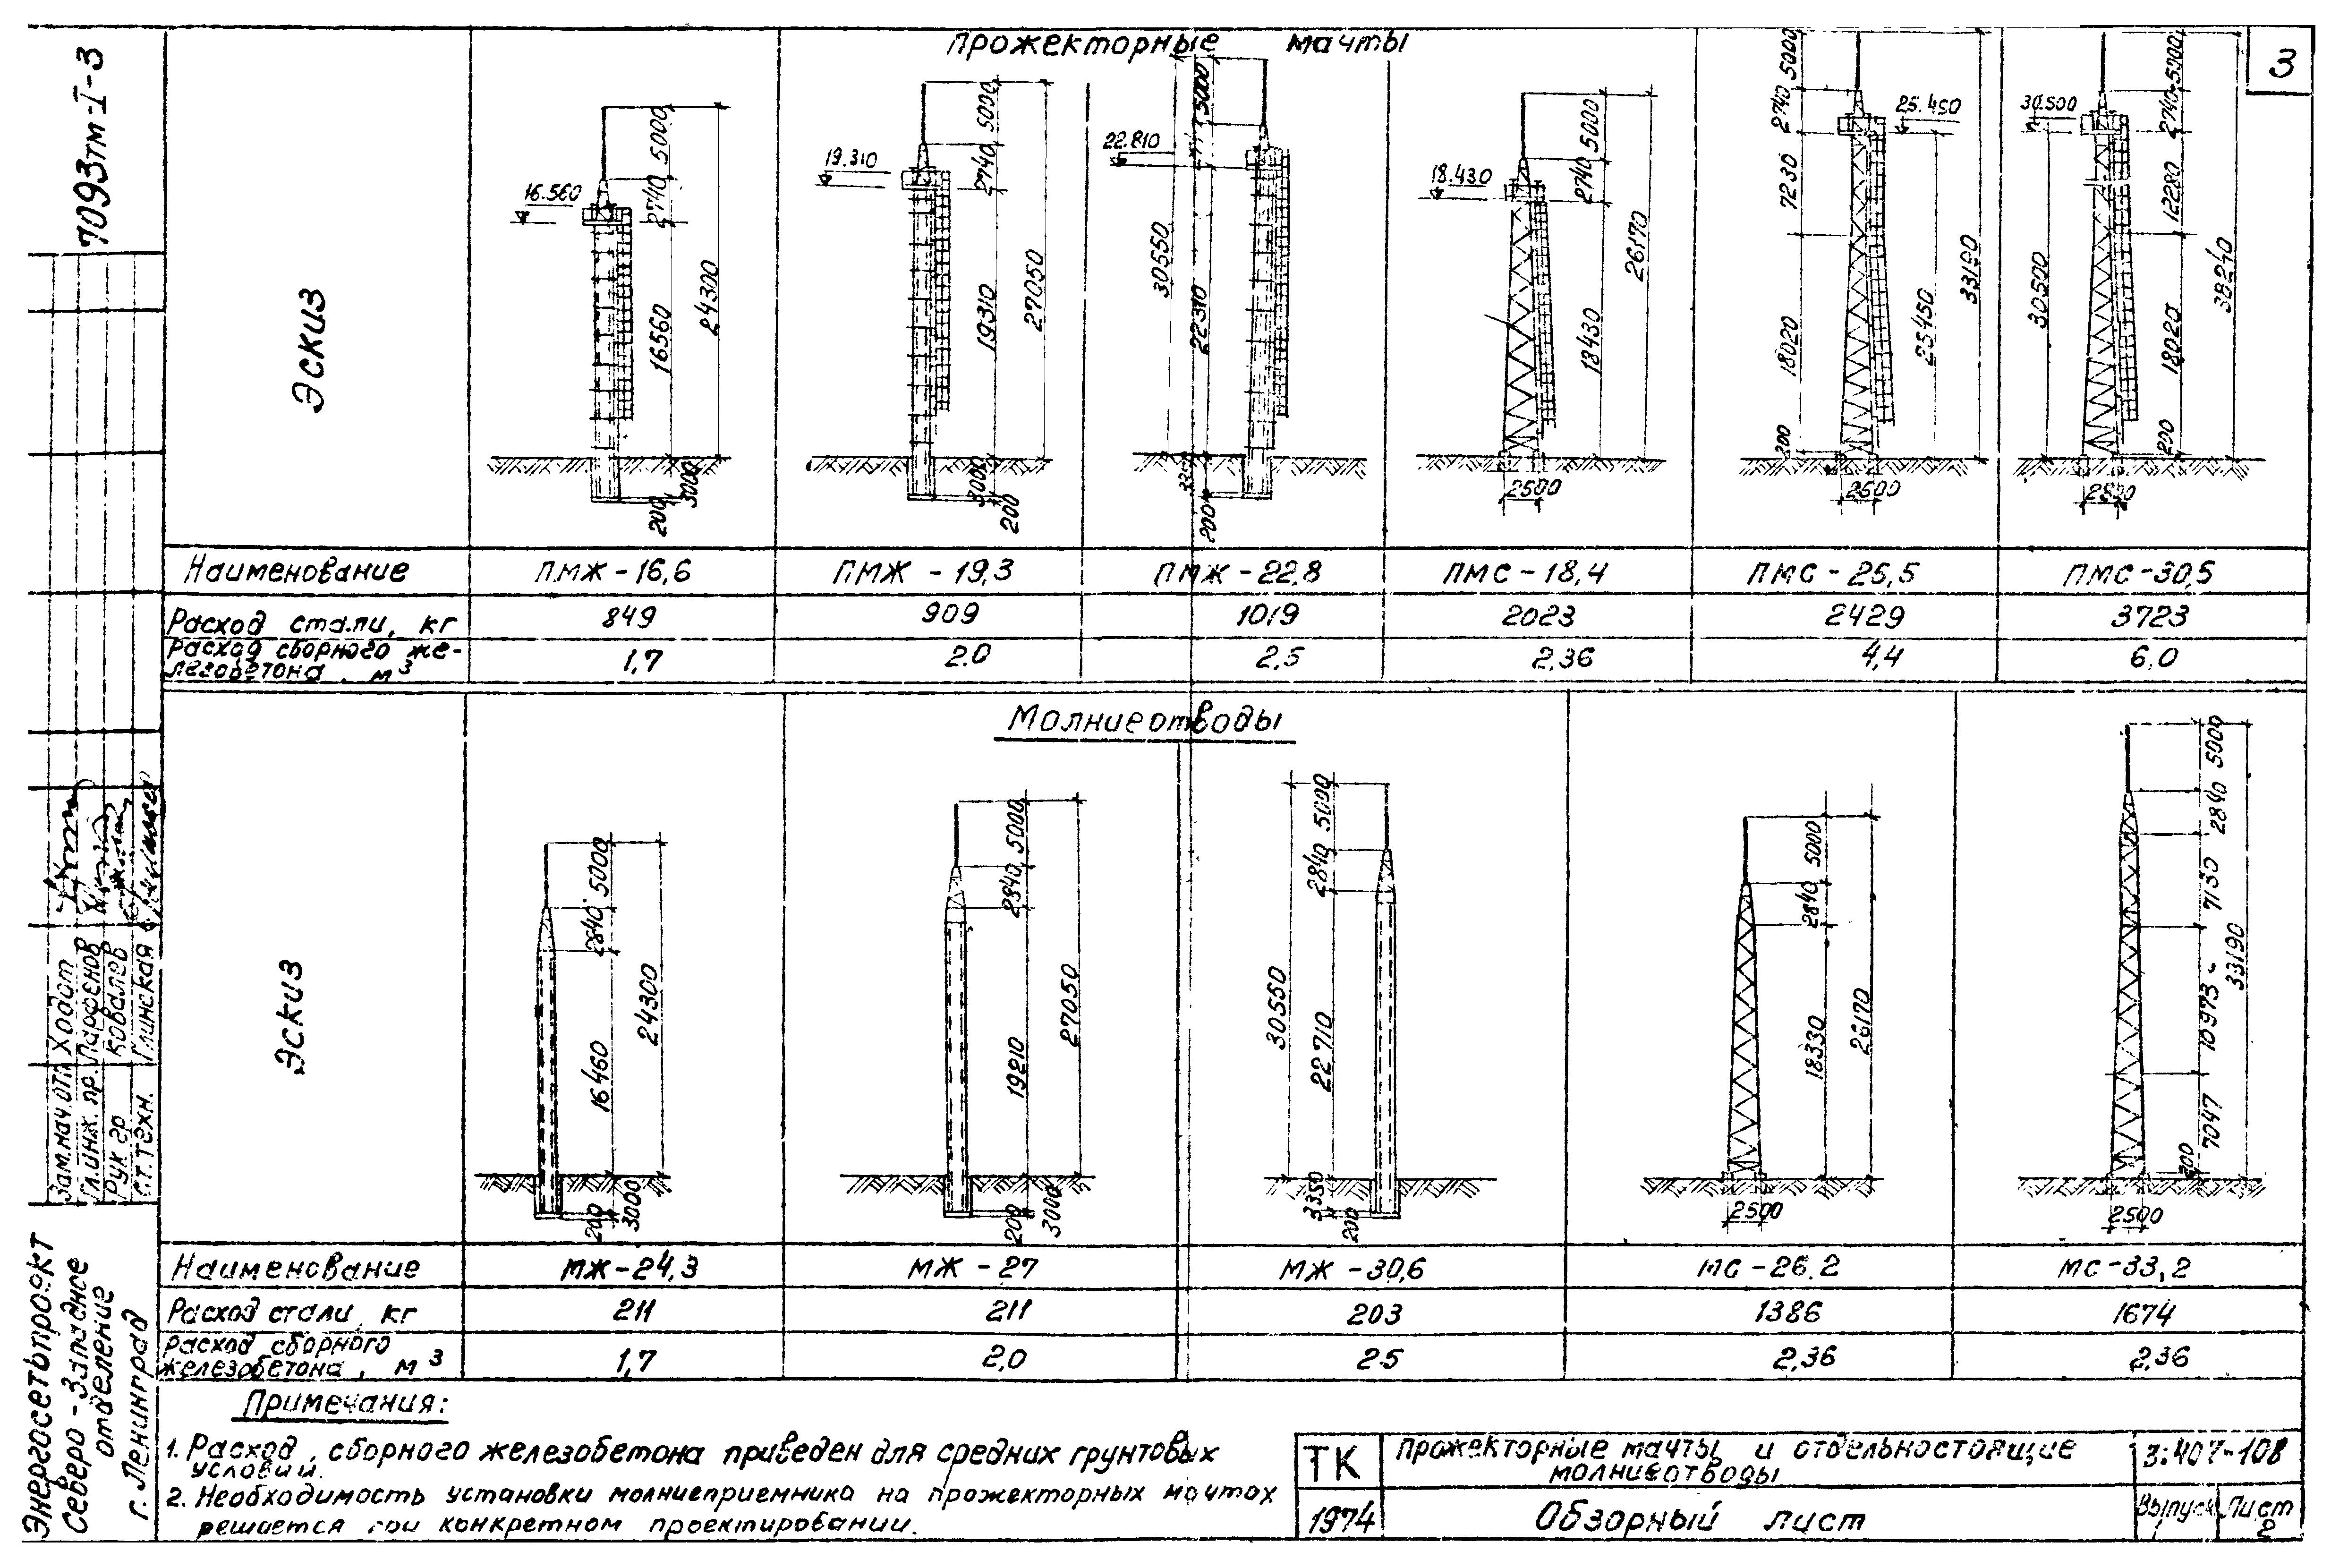 7093тм-I-3
3
Прожекторные мачты
Эскиз
16.560
5000
2740
16560
24300
3000
200
19.310
5000
2740
19310
27050
3000
200
22.810
5000
30550
22310
200
18.430
5000
2740
18430
26170
2500
5000
2740
7230
18020
200
25.450
25450
33190
2500
30.500
30500
5000
2740
12280
18020
200
38240
Наименование ПМЖ-16,6 ПМЖ-19,3 ПМЖ-22,8 ПМС-18,4 ПМС-25,5 ПМС-30,5
Расход стали, кг 849 909 1019 2023 2429 3723
Расход сборного же-
лезобетона, м3 1,7 2.0 2,5 2,36 4,4 6,0
Молниеотводы
Эскиз
5000
2840
16460
24300
3000
200
5000
2840
19210
27050
3000
200
5000
2840
30550
22710
3350
200
5000
2840
18330
26170
2500
5000
2840
7130
10973
7047
200
33190
2500
Наименование МЖ-24,3 МЖ-27 МЖ-30,6 МС-26.2 МС-33,2
Расход стали, кг 211 211 203 1386 1674
Расход сборного
железобетона, м3 1,7 2,0 2.5 2,36 2,36
Примечания:
1. Расход, сборного железобетона приведен для средних грунтовых
условий.
2. Необходимость установки молниеприемника на прожекторных мачтах
решается при конкретном проектировании.
ТК
1974
Прожекторные мачты и отдельностоящие
молниеотводы
Обзорный лист
3.407-108
Выпуск
1
Лист
Зам.нач.отп Ходот
Гл.инж.пр. Парфенов
Рук гр Ковалев
Ст.техн. Глинская
Энергосетьпроект
Северо-Западное
отделение
г. Ленинград